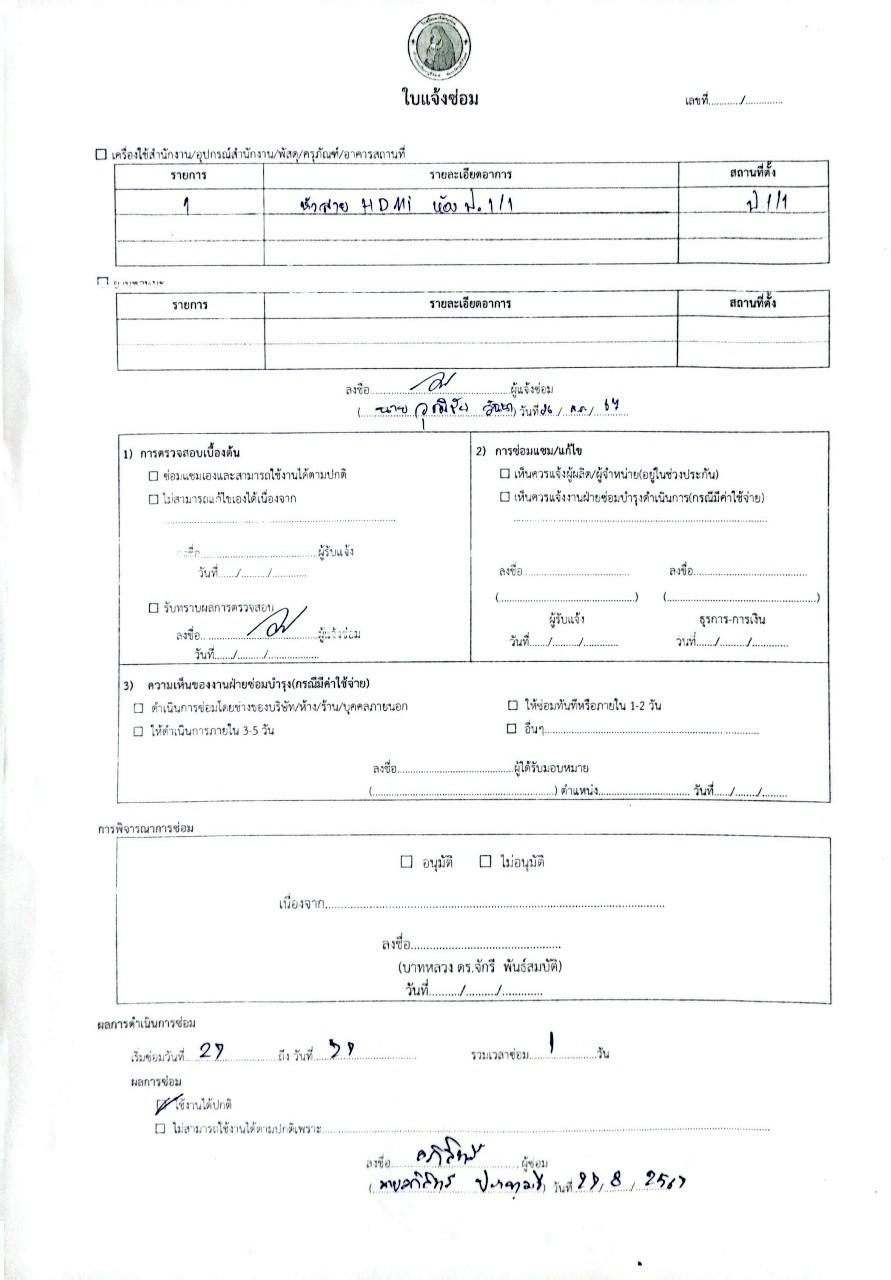 ใบแจ้งซ่อม
เลขที่........../.............
เครื่องใช้สำนักงาน/อุปกรณ์สำนักงาน/พัสดุ/ครุภัณฑ์/อาคารสถานที่
รายการ รายละเอียดอาการ สถานที่ตั้ง
1 หัวสาย HDMi ห้อง ป. 1/1 ป 1/1
รายการ รายละเอียดอาการ สถานที่ตั้ง
ลงชื่อ..............................ผู้แจ้งซ่อม
(นาย ) วันที่ 26 / / 67
1) การตรวจสอบเบื้องต้น
ซ่อมแซมเองและสามารถใช้งานได้ตามปกติ
ไม่สามารถแก้ไขเองได้เนื่องจาก
ลงชื่อ..............................ผู้รับแจ้ง
วันที่....../........./............
รับทราบผลการตรวจสอบ
ลงชื่อ..............................ผู้แจ้งซ่อม
วันที่....../........./.................
2) การซ่อมแซม/แก้ไข
เห็นควรแจ้งผู้ผลิต/ผู้จำหน่าย(อยู่ในช่วงประกัน)
เห็นควรแจ้งงานฝ่ายซ่อมบำรุงดำเนินการ(กรณีมีค่าใช้จ่าย)
ลงชื่อ.............................. ลงชื่อ..............................
(..............................) (..............................)
ผู้รับแจ้ง ธุรการ-การเงิน
วันที่....../......../........... วันที่....../......../...........
3) ความเห็นของงานฝ่ายซ่อมบำรุง(กรณีมีค่าใช้จ่าย)
ดำเนินการซ่อมโดยช่างของบริษัท/ห้าง/ร้าน/บุคคลภายนอก ให้ซ่อมทันทีหรือภายใน 1-2 วัน
ให้ดำเนินการภายใน 3-5 วัน อื่นๆ..............................
ลงชื่อ..............................ผู้ได้รับมอบหมาย
(..............................) ตำแหน่ง.............................. วันที่...../......./........
การพิจารณาการซ่อม
อนุมัติ ไม่อนุมัติ
เนื่องจาก..............................
ลงชื่อ..............................
(บาทหลวง ดร.จักรี พันธ์สมบัติ)
วันที่........./........./............
ผลการดำเนินการซ่อม
เริ่มซ่อมวันที่ 27 ถึง วันที่ รวมเวลาซ่อม 1 วัน
ผลการซ่อม
ใช้งานได้ปกติ
ไม่สามารถใช้งานได้ตามปกติเพราะ..............................
ลงชื่อ ผู้ซ่อม
( ) วันที่ 27 / 8 / 2567